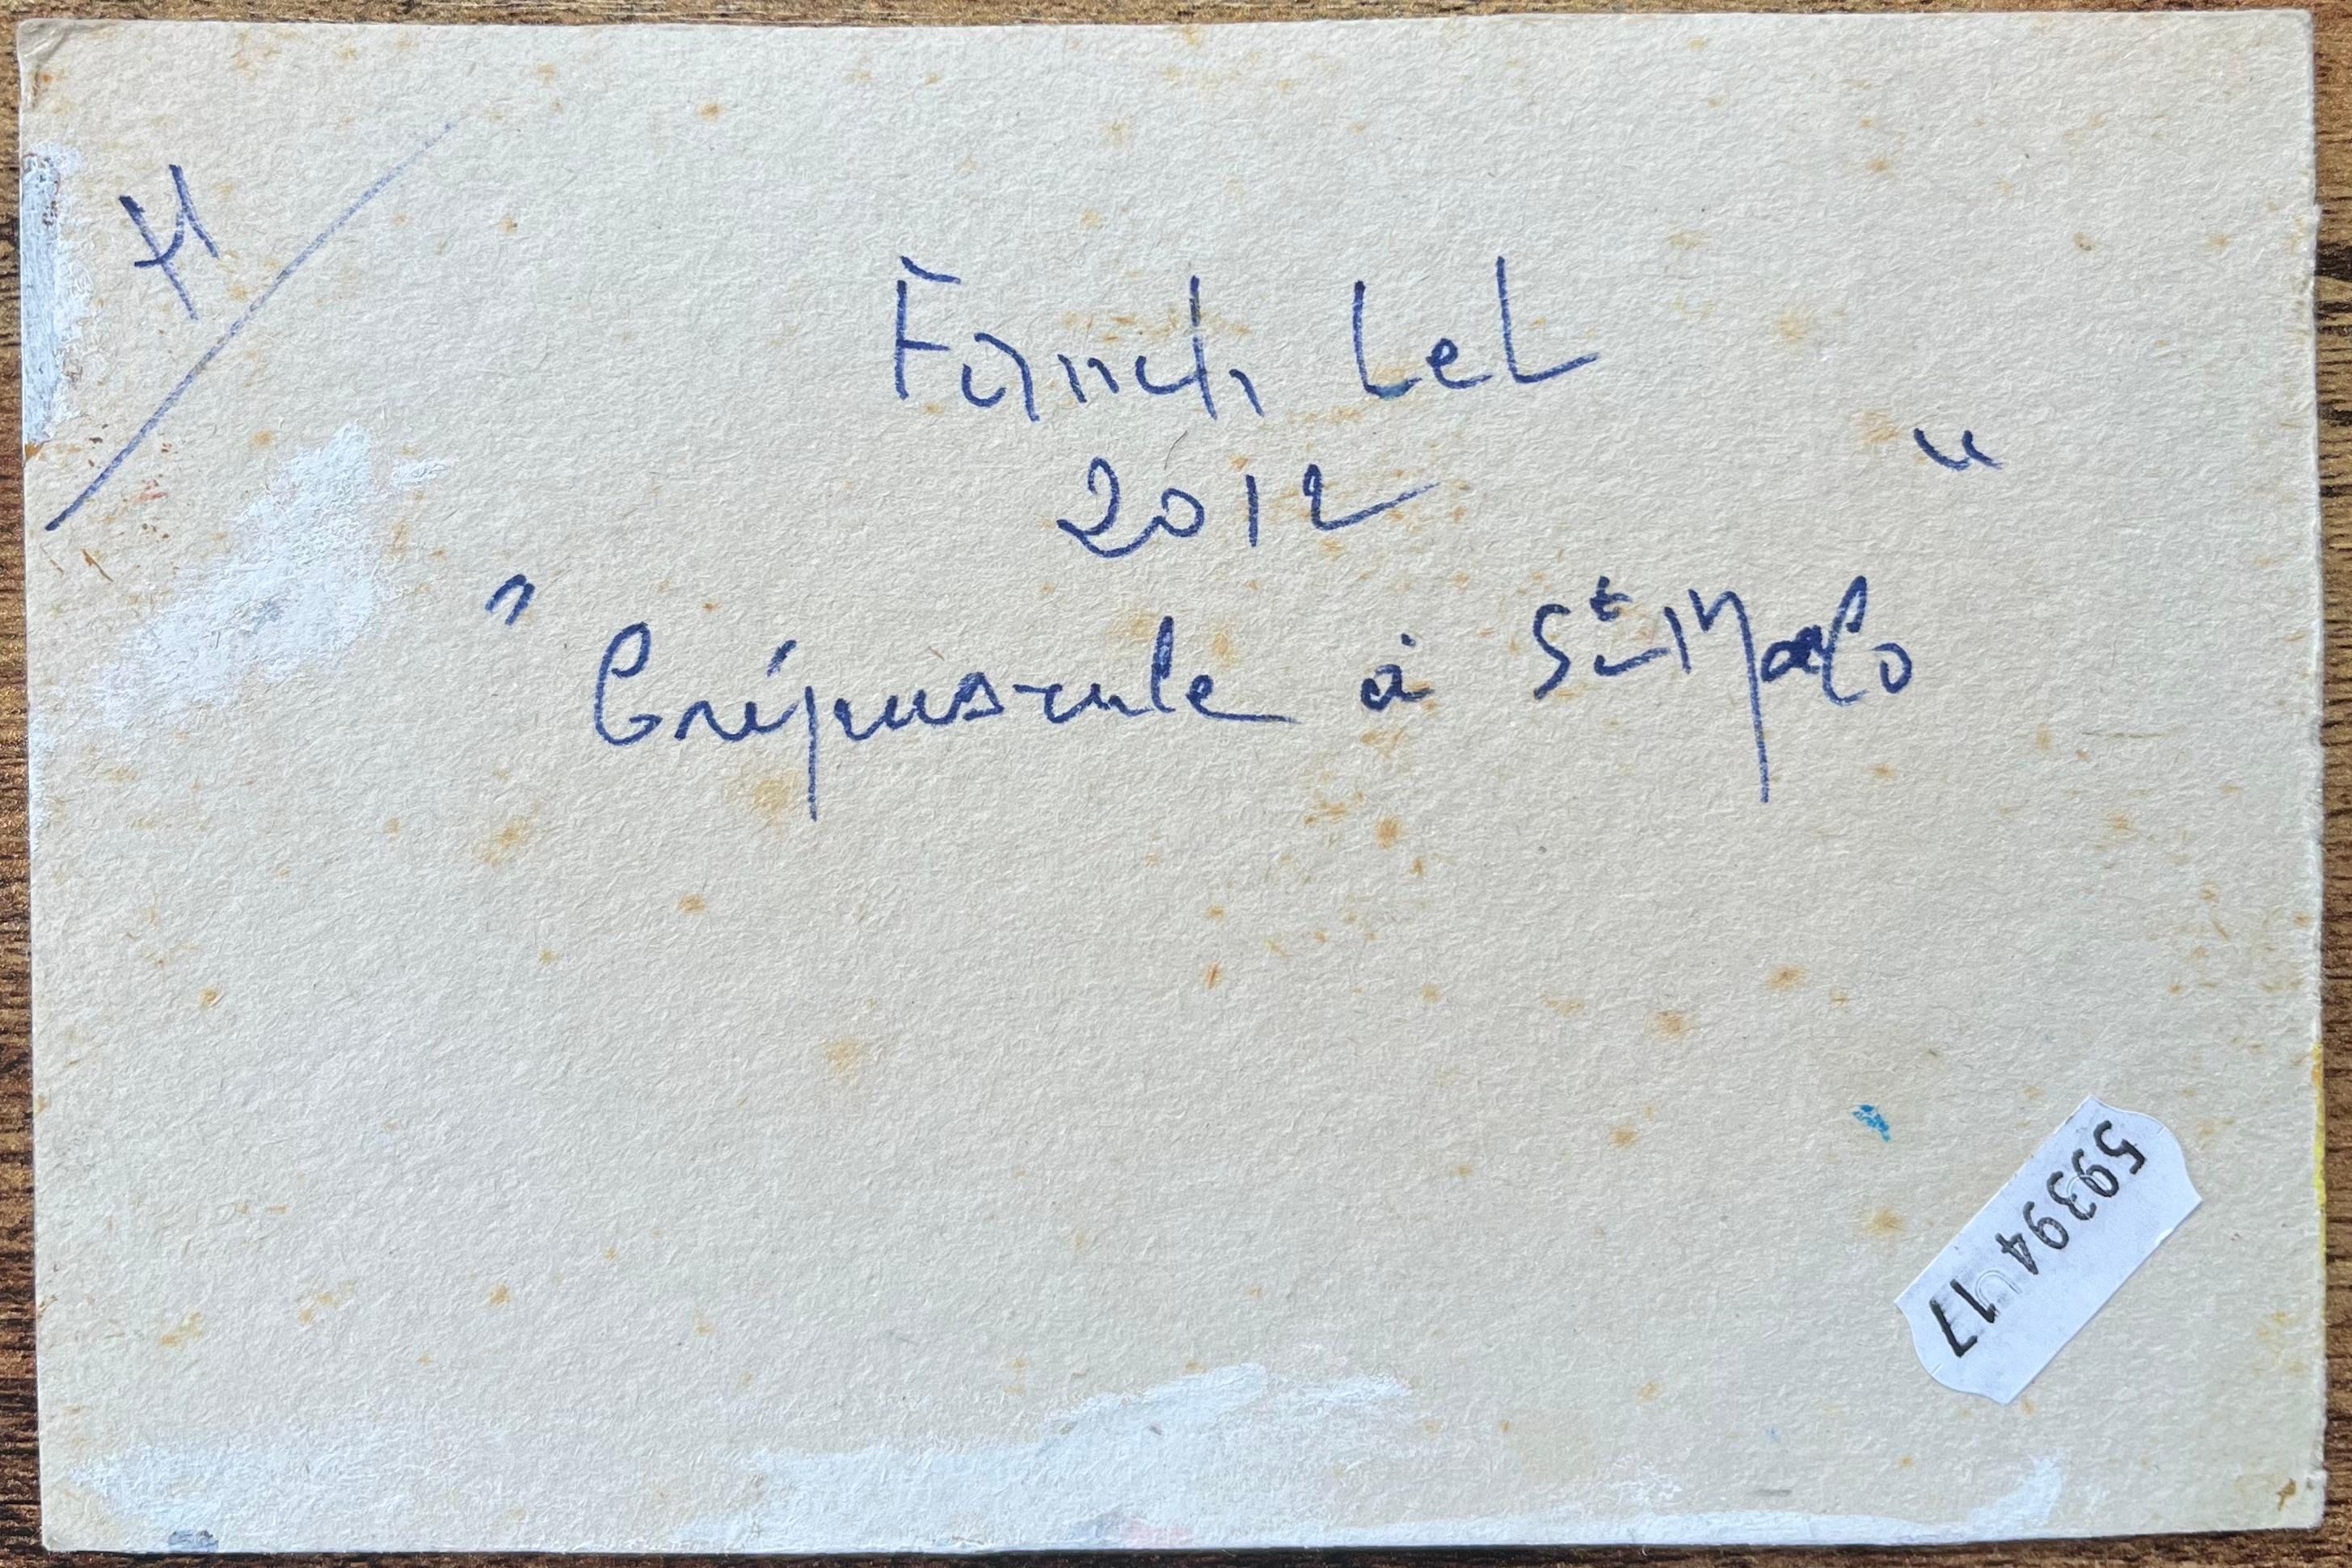 H
Fanch Lel
2012
"Crépuscule à St-Malo"
59394 17